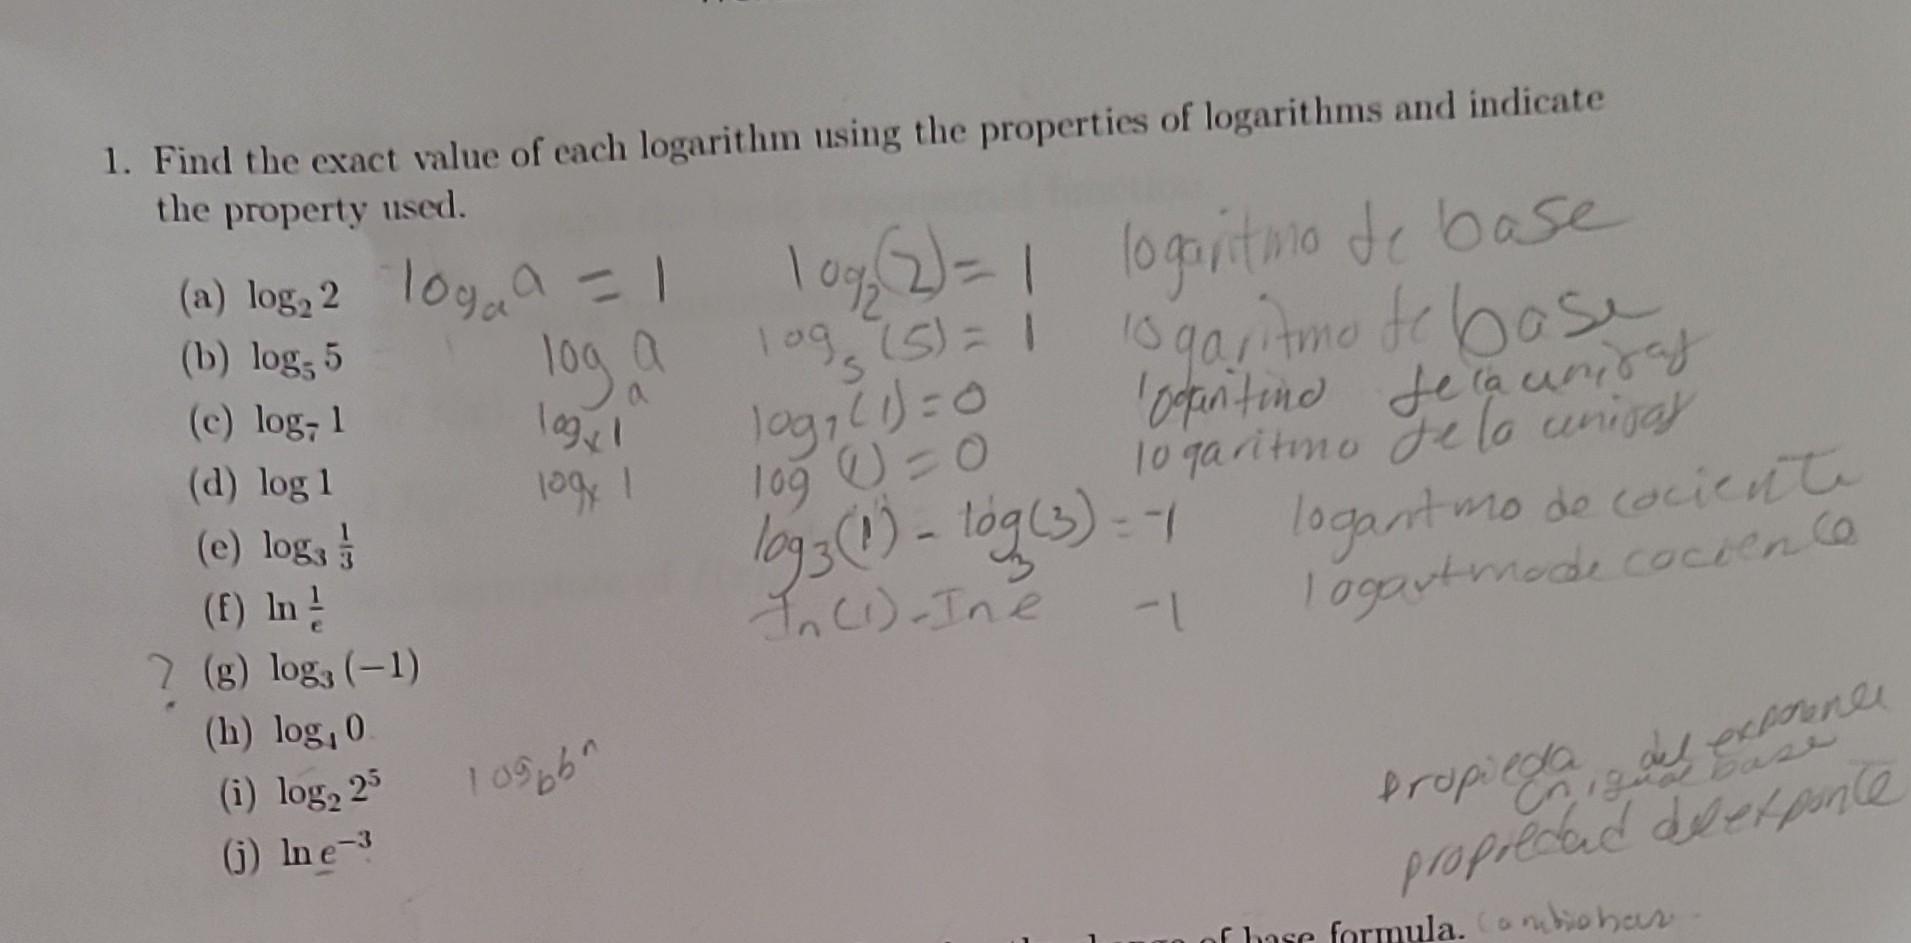 1. Find the exact value of each logarithm using the properties of logarithms and indicate
the property used.
(a) log₂ 2 logₐ a = 1 log₂(2) = 1 logaritmo de base
(b) log₅ 5 logₐ a log₅(5) = 1 logaritmo de base
(c) log₇ 1 logₓ 1 log₇(1) = 0 logaritmo de la unidad
(d) log 1 logₓ 1 log (1) = 0 logaritmo de la unidad
(e) log₃ 1/3 log₃(1) - log₃(3) = -1 logaritmo de cociente
(f) ln 1/e In(1) - In e -1 logaritmo de
? (g) log₃ (−1)
(h) log₄ 0
(i) log₂ 2⁵ log_b bⁿ propieda del
en igual base
(j) ln e⁻³ propiedad de
of base formula.